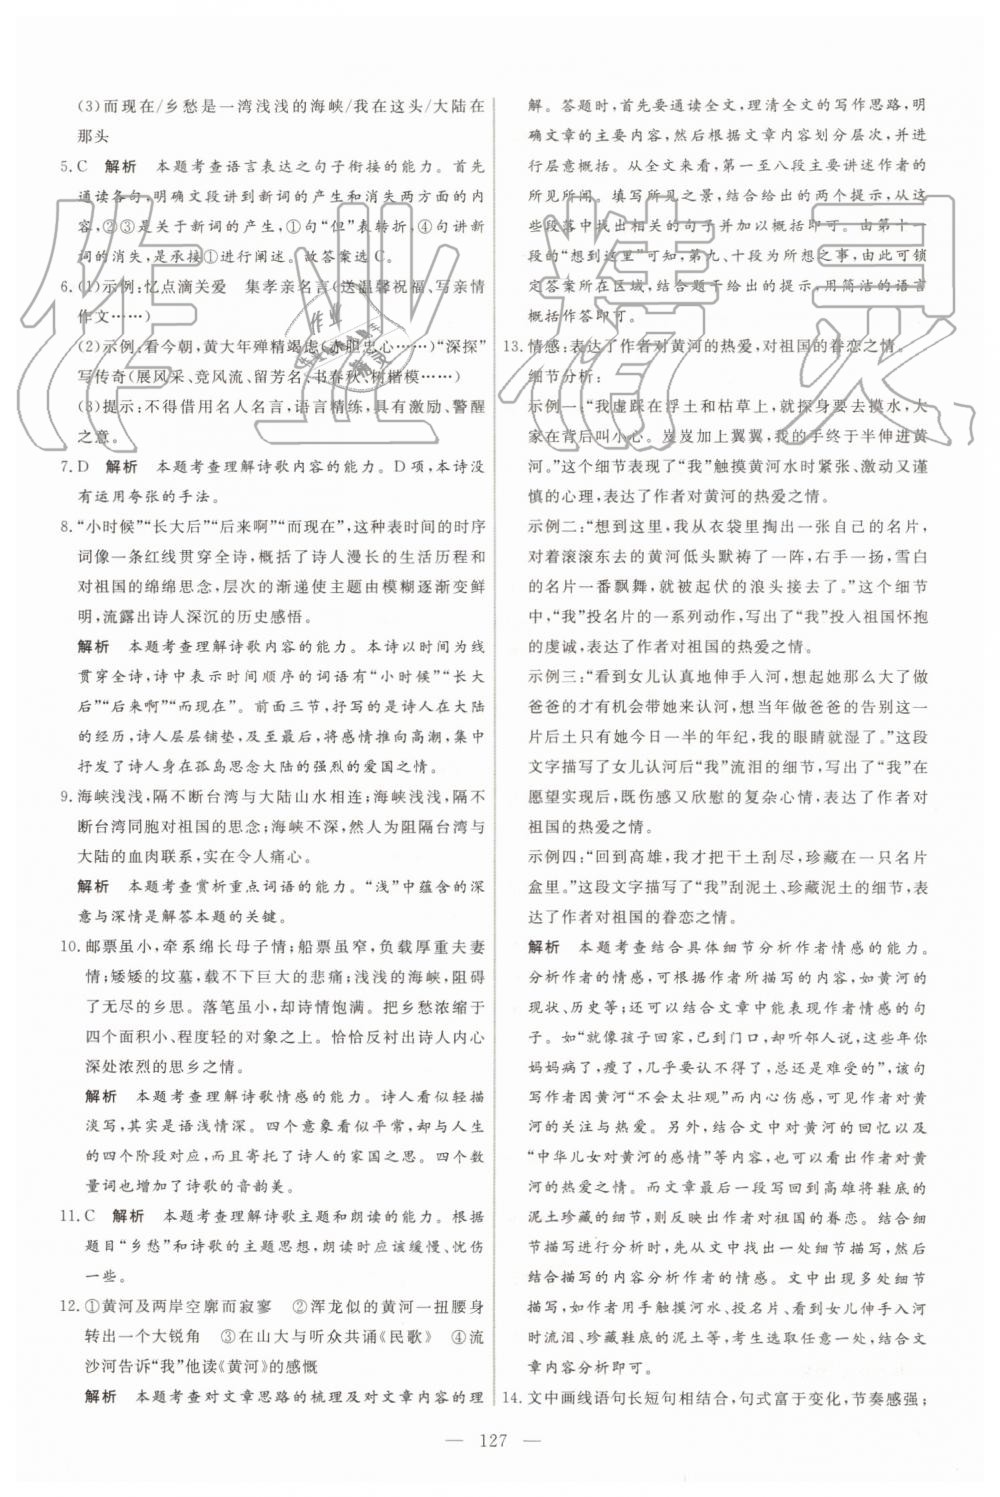 (3)而现在/乡愁是一湾浅浅的海峡/我在这头/大陆在
那头
5. C 解析 本题考查语言表达之句子衔接的能力。首先
通读各句,明确文段讲到新词的产生和消失两方面的内
容,②③是关于新词的产生,①句“但”表转折,④句讲新
词的消失,是承接①进行阐述。故答案选C。
6. (1)示例:忆点滴关爱 集孝亲名言(送温馨祝福、写亲情
作文……)
(2)示例:看今朝,黄大年殚精竭虑(赤胆忠心……)“深探”
写传奇(展风采、竞风流、留芳名、书春秋、树楷模……)
(3)提示:不得借用名人名言,语言精练,具有激励、警醒
之意。
7. D 解析 本题考查理解诗歌内容的能力。D项,本诗没
有运用夸张的手法。
8. “小时候”“长大后”“后来啊”“而现在”,这种表时间的时序
词像一条红线贯穿全诗,概括了诗人漫长的生活历程和
对祖国的绵绵思念,层次的渐递使主题由模糊逐变鲜
明,流露出诗人深沉的历史感悟。
解析 本题考查理解诗歌内容的能力。本诗以时间为线
贯穿全诗,诗中表示时间顺序的词语有“小时候”“长大
后”“后来啊”“而现在”。前面三节,抒写的是诗人在大陆
的经历,诗人层层铺垫,及其将感情推向高潮,集中
抒发了诗人身在孤岛思念大陆的强烈的爱国之情。
9. 海峡浅浅,隔不断台湾与大陆山水相连;海峡浅浅,隔不
断台湾同胞对祖国的思念;海峡不深,然人为阻隔台湾与
大陆的血肉联系,实在令人痛心。
解析 本题考查赏析重点词语的能力。“浅”中蕴含的深
意与深情是解答本题的关键。
10. 邮票虽小,牵系绵长母子情;船票虽窄,负载厚重夫妻
情;矮矮的坟墓,载不下巨大的悲痛;浅浅的海峡,阻碍
了无尽的乡思。落笔虽小,却诗情饱满。把乡愁浓缩于
四个面积小、程度轻的对象之上。恰恰反衬出诗人内心
深处浓烈的思乡之情。
解析 本题考查理解诗歌情感的能力。诗人看似轻描
淡写,其实是语浅情深。四个意象看似平常,却与人生
的四个阶段对应,而且关联诗人的家国之思。四个数
量词也增加了诗歌的音韵美。
11. C 解析 本题考查理解诗歌主题和朗读的能力。根据
题目“乡愁”和诗歌的主题思想,朗读时应该缓慢、忧伤
一些。
12. ①黄河及两岸空廓而寂寥 ②浑龙似的黄河一扭腰身
转出一个大锐角 ③在山大与听众共诵《民歌》 ④流
沙河告诉“我”他读《黄河》的感慨
解析 本题考查对文章思路的梳理及对文章内容的理
解。答题时,首先要通读全文,理清全文的写作思路,明
确文章的主要内容,然后根据文章内容划分层次,并进
行层意概括。从全文来看,第一至八段主要讲述作者的
所见所闻。填写所见之景,结合给出的两个提示,从这
些段落中找出相关的句子并进行概括即可。由第十一
段的“想到这里”可知,第九、十段为所想之事,由此可锁
定答案所在区域,结合题干给出的提示,用简洁的语言
概括作答即可。
13. 情感:表达了作者对黄河的热爱,对祖国的眷恋之情。
细节分析:
示例一:“我虚踩在浮土和枯草上,就探身要去摸水,大
家在背后叫小心。岌岌加上翼翼,我的手终于半伸进黄
河。”这个细节表现了“我”触摸黄河水时紧张、激动又谨
慎的心理,表达了作者对黄河的热爱之情。
示例二:“想到这里,我从衣袋里掏出一张自己的名片,
对着滚滚东去的黄河低头默祷了一阵,右手一扬,雪白
的名片一番飘舞,就被起伏的浪头接去了。”这个细节
中,“我”投名片的一系列动作,写出了“我”投入祖国怀抱
的虔诚,表达了作者对祖国的热爱之情。
示例三:“看到女儿认真地伸手入河,想起她那么大了做
爸爸的才有机会带她来认河,想当年做爸爸的告别这一
片后土只有她今日一半的年纪,我的眼睛就湿了。”这段
文字描写了女儿认河后“我”流泪的细节,写出了“我”在
愿望实现后,既伤感又欣慰的复杂心情,表达了作者对
祖国的热爱之情。
示例四:“回到高雄,我才把干土刮尽,珍藏在一只名片
盒里。”这段文字描写了“我”刮泥土、珍藏泥土的细节,表
达了作者对祖国的眷恋之情。
解析 本题考查结合具体细节分析作者情感的能力。
分析作者的情感,可根据作者所描写的内容,如黄河的
现状、历史等;还可以结合文章中能表现作者情感的句
子。如“就像孩子回家,已到门口,却听邻人说,这些年你
妈妈病了,瘦了,几乎要认不得了,总还是难受的”,该句
写作者因黄河“不会太壮观”而内心伤感,可以看出作者对黄
河的关注与热爱。另外,结合文中对黄河的回忆以及
“中华儿女对黄河的感情”等内容,也可以看出作者对黄
河的热爱之情。而文章最后一段写回到高雄将鞋底的
泥土珍藏的细节,则反映出作者对祖国的眷恋。结合细
节描写进行分析时,先从文中找出一处细节描写,然后
结合描写的内容分析作者的情感。文中出现多处细节
描写,如作者用手触摸河水、投名片、看到女儿伸手入河
时流泪、珍藏鞋底的泥土等,考生选取任意一处,结合文
章内容分析即可。
14. 文中画线语句长短句相结合,句式富于变化,节奏感强;
— 127 —